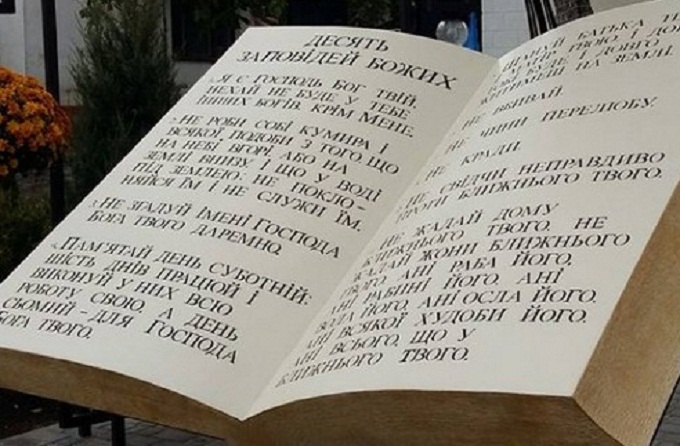 ДЕСЯТЬ
ЗАПОВІДЕЙ БОЖИХ
1. Я Є ГОСПОДЬ БОГ ТВІЙ.
НЕХАЙ НЕ БУДЕ У ТЕБЕ
ІНШИХ БОГІВ, КРІМ МЕНЕ.
2. НЕ РОБИ СОБІ КУМИРА І
ВСЯКОЇ ПОДОБИ З ТОГО, ЩО
НА НЕБІ ВГОРІ, АБО НА
ЗЕМЛІ ВНИЗУ, І ЩО У ВОДІ
ПІД ЗЕМЛЕЮ; НЕ ПОКЛО-
НЯЙСЯ ЇМ І НЕ СЛУЖИ ЇМ.
3. НЕ ЗГАДУЙ ІМЕНІ ГОСПОДА
БОГА ТВОГО ДАРЕМНО.
4. ПАМ'ЯТАЙ ДЕНЬ СУБОТНІЙ:
ШІСТЬ ДНІВ ПРАЦЮЙ І
ВИКОНУЙ У НИХ ВСЮ
РОБОТУ СВОЮ, А ДЕНЬ
СЬОМИЙ - ДЛЯ ГОСПОДА
БОГА ТВОГО.
ШАНУЙ БАТЬКА
МАТІР ТВОЮ, І
БУДЕ, І ДОВГО
ЖИТИМЕШ НА ЗЕМЛІ.
НЕ ВБИВАЙ.
НЕ ЧИНИ ПЕРЕЛЮБУ.
НЕ КРАДИ.
НЕ СВІДЧИ НЕПРАВДИВО
ПРОТИ БЛИЖНЬОГО ТВОГО.
НЕ ЖАДАЙ ДОМУ
БЛИЖНЬОГО ТВОГО, НЕ
ЖАДАЙ ЖОНИ БЛИЖНЬОГО
ТВОГО, АНІ РАБА ЙОГО,
АНІ РАБИНІ ЙОГО, АНІ
ВОЛА ЙОГО, АНІ ОСЛА ЙОГО,
АНІ ВСЯКОЇ ХУДОБИ ЙОГО,
АНІ ВСЬОГО, ЩО У
БЛИЖНЬОГО ТВОГО.